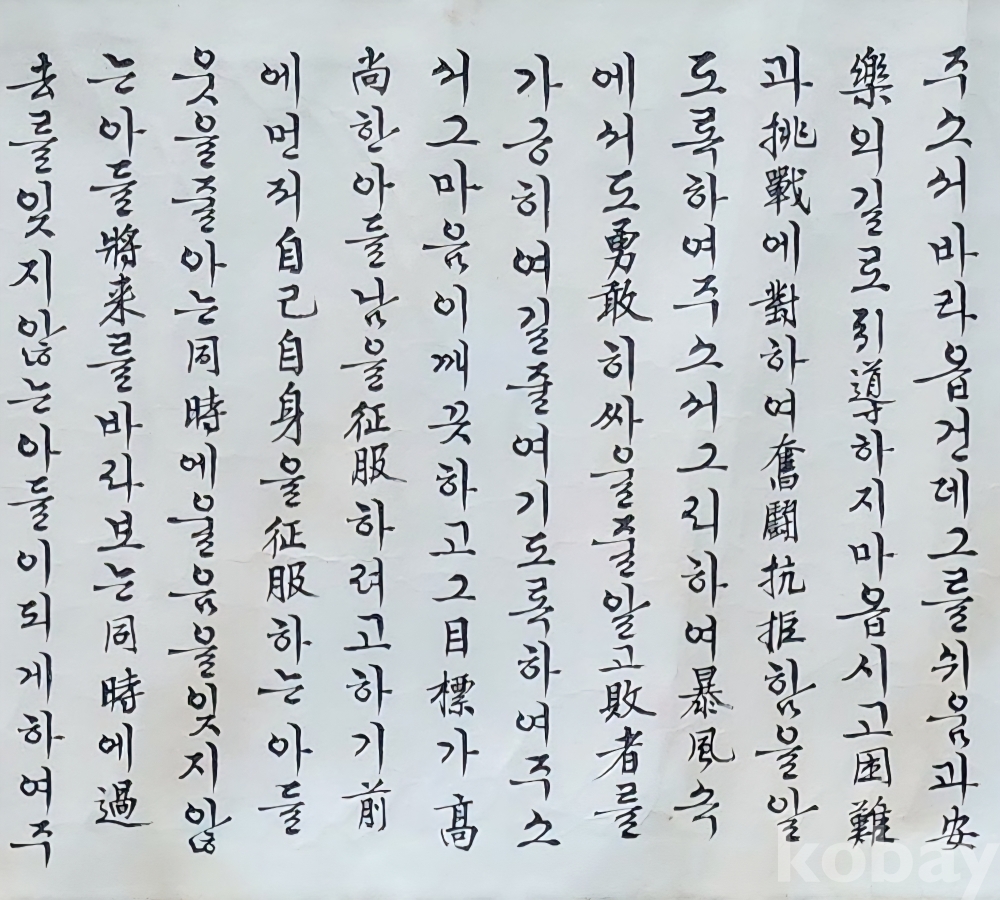 주소서바라옵건데그를쉬움과安
樂의길로引導하지마옵시고困難
과挑戰에對하여奮鬪抗拒함을알
도록하여주소서그리하여暴風속
에서도勇敢히싸울줄알고敗者를
가긍히여길줄여기도록하여주소
서그마음이깨끗하고그目標가高
尚한아들남을征服하려고하기前
에먼저自己自身을征服하는아들
웃을줄아는同時에울음을잊지않
는아들將来를바라보는同時에過
去를잊지않는아들이되게하여주
kobay